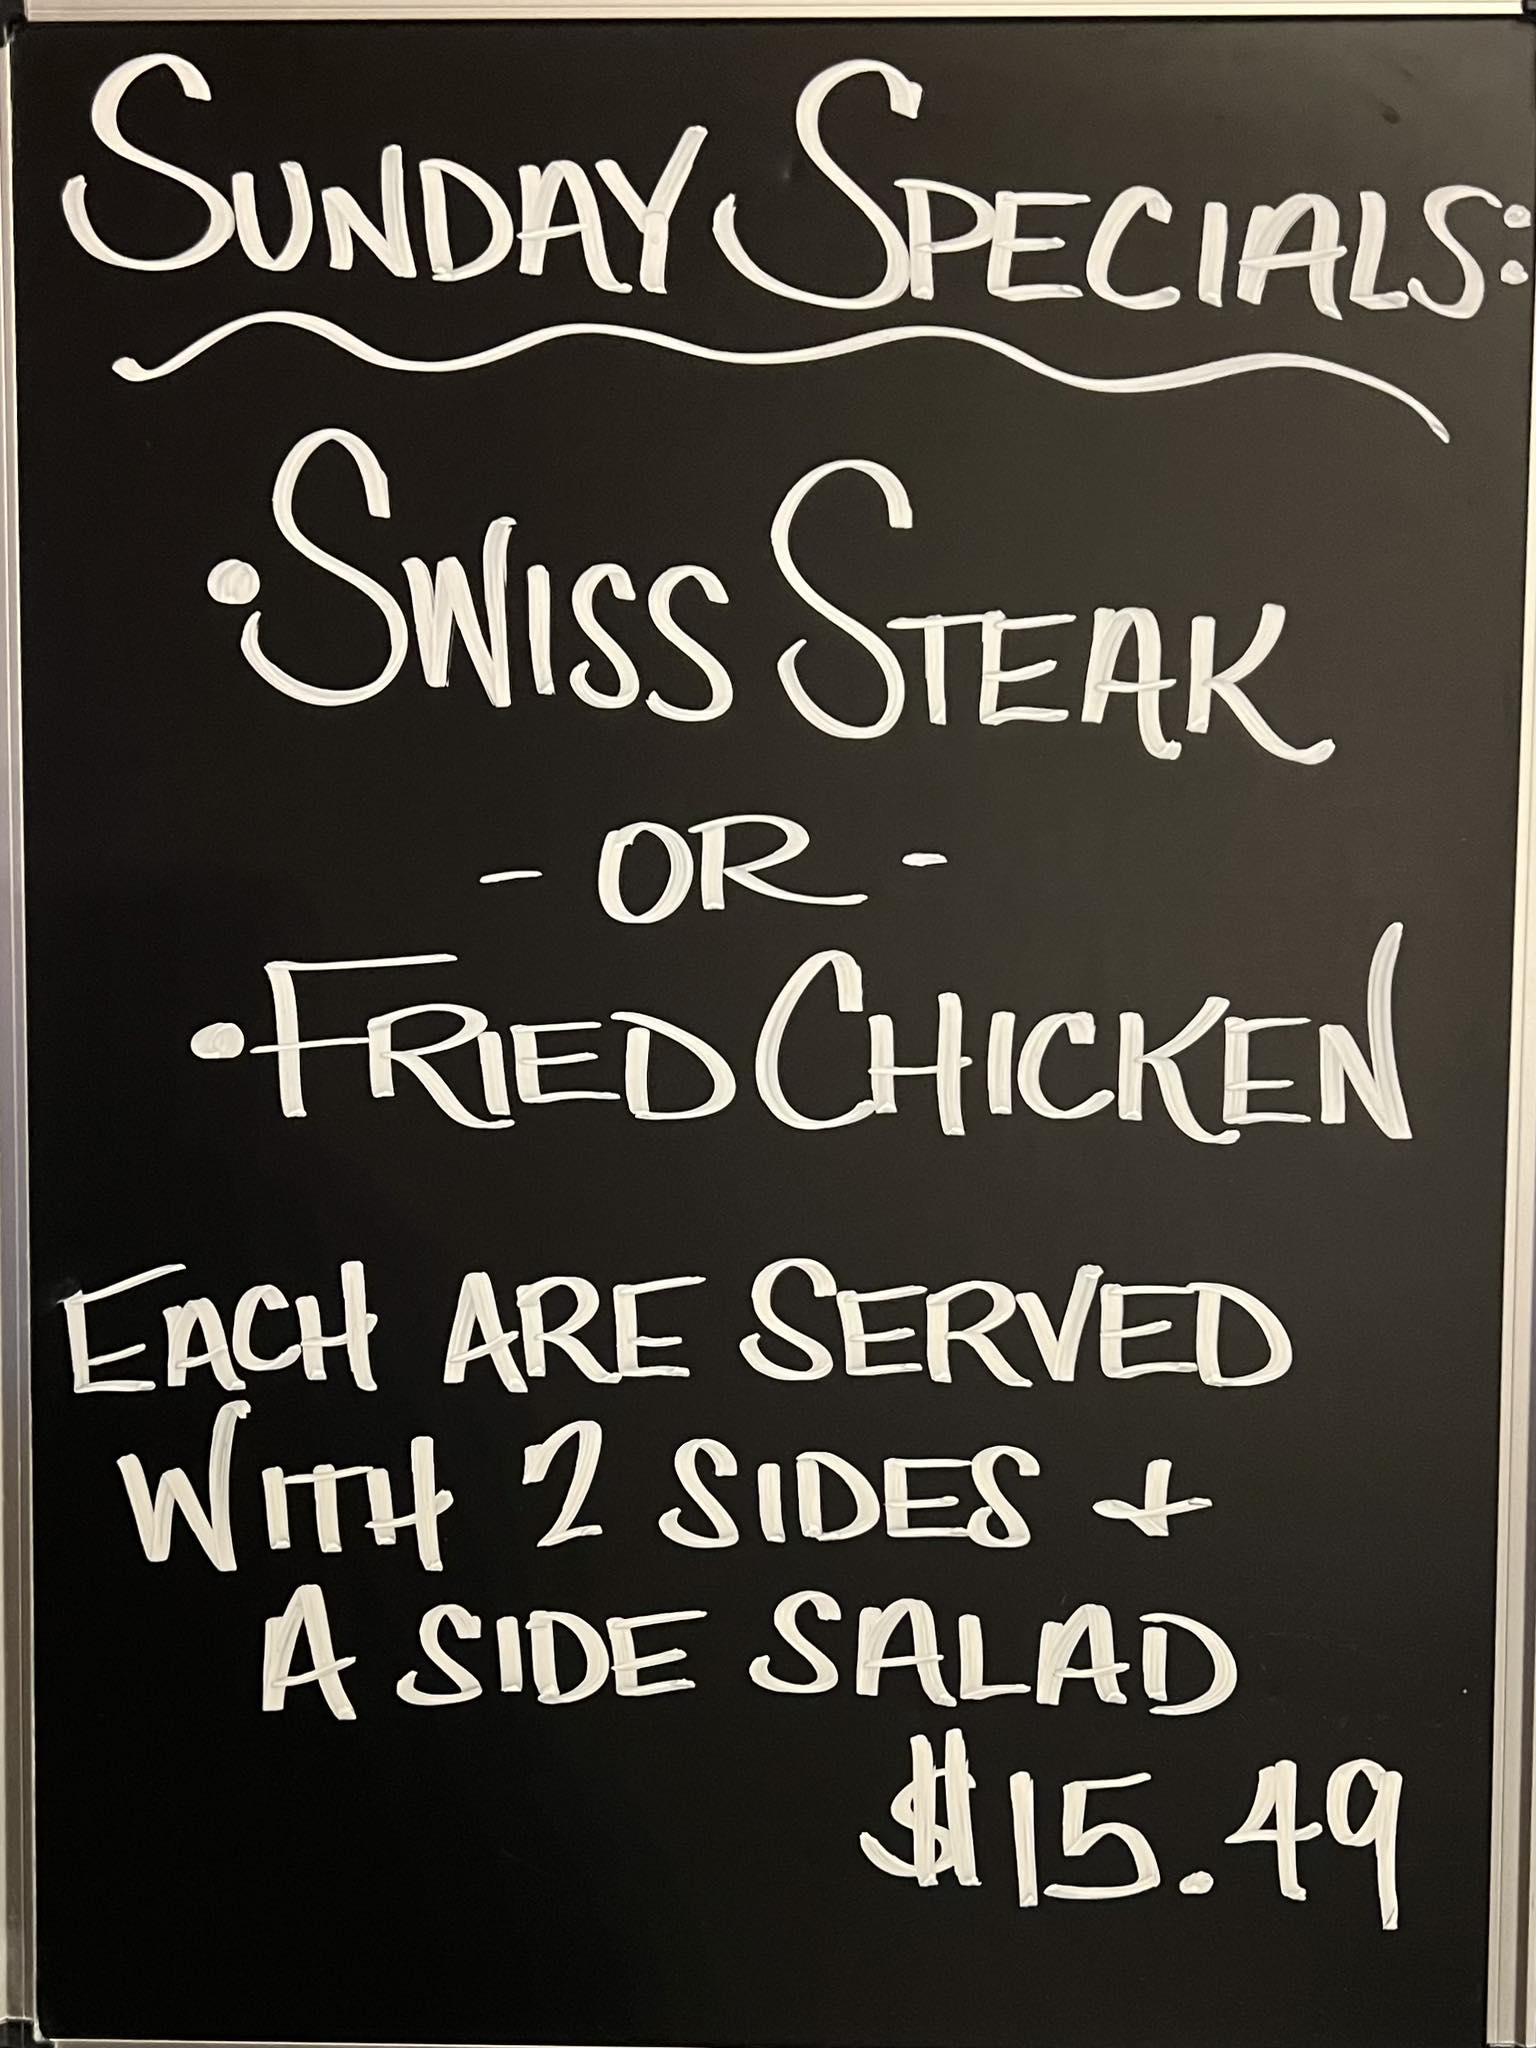 SUNDAY SPECIALS:
• SWISS STEAK
- OR -
• FRIED CHICKEN
EACH ARE SERVED
WITH 2 SIDES +
A SIDE SALAD
$15.49